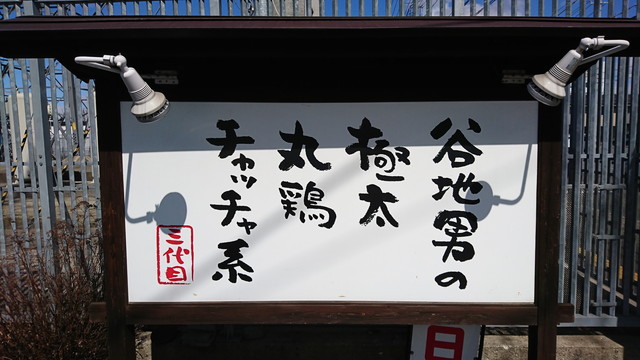 谷地男の
極太
丸鶏
チャッチャ系
三代目
日